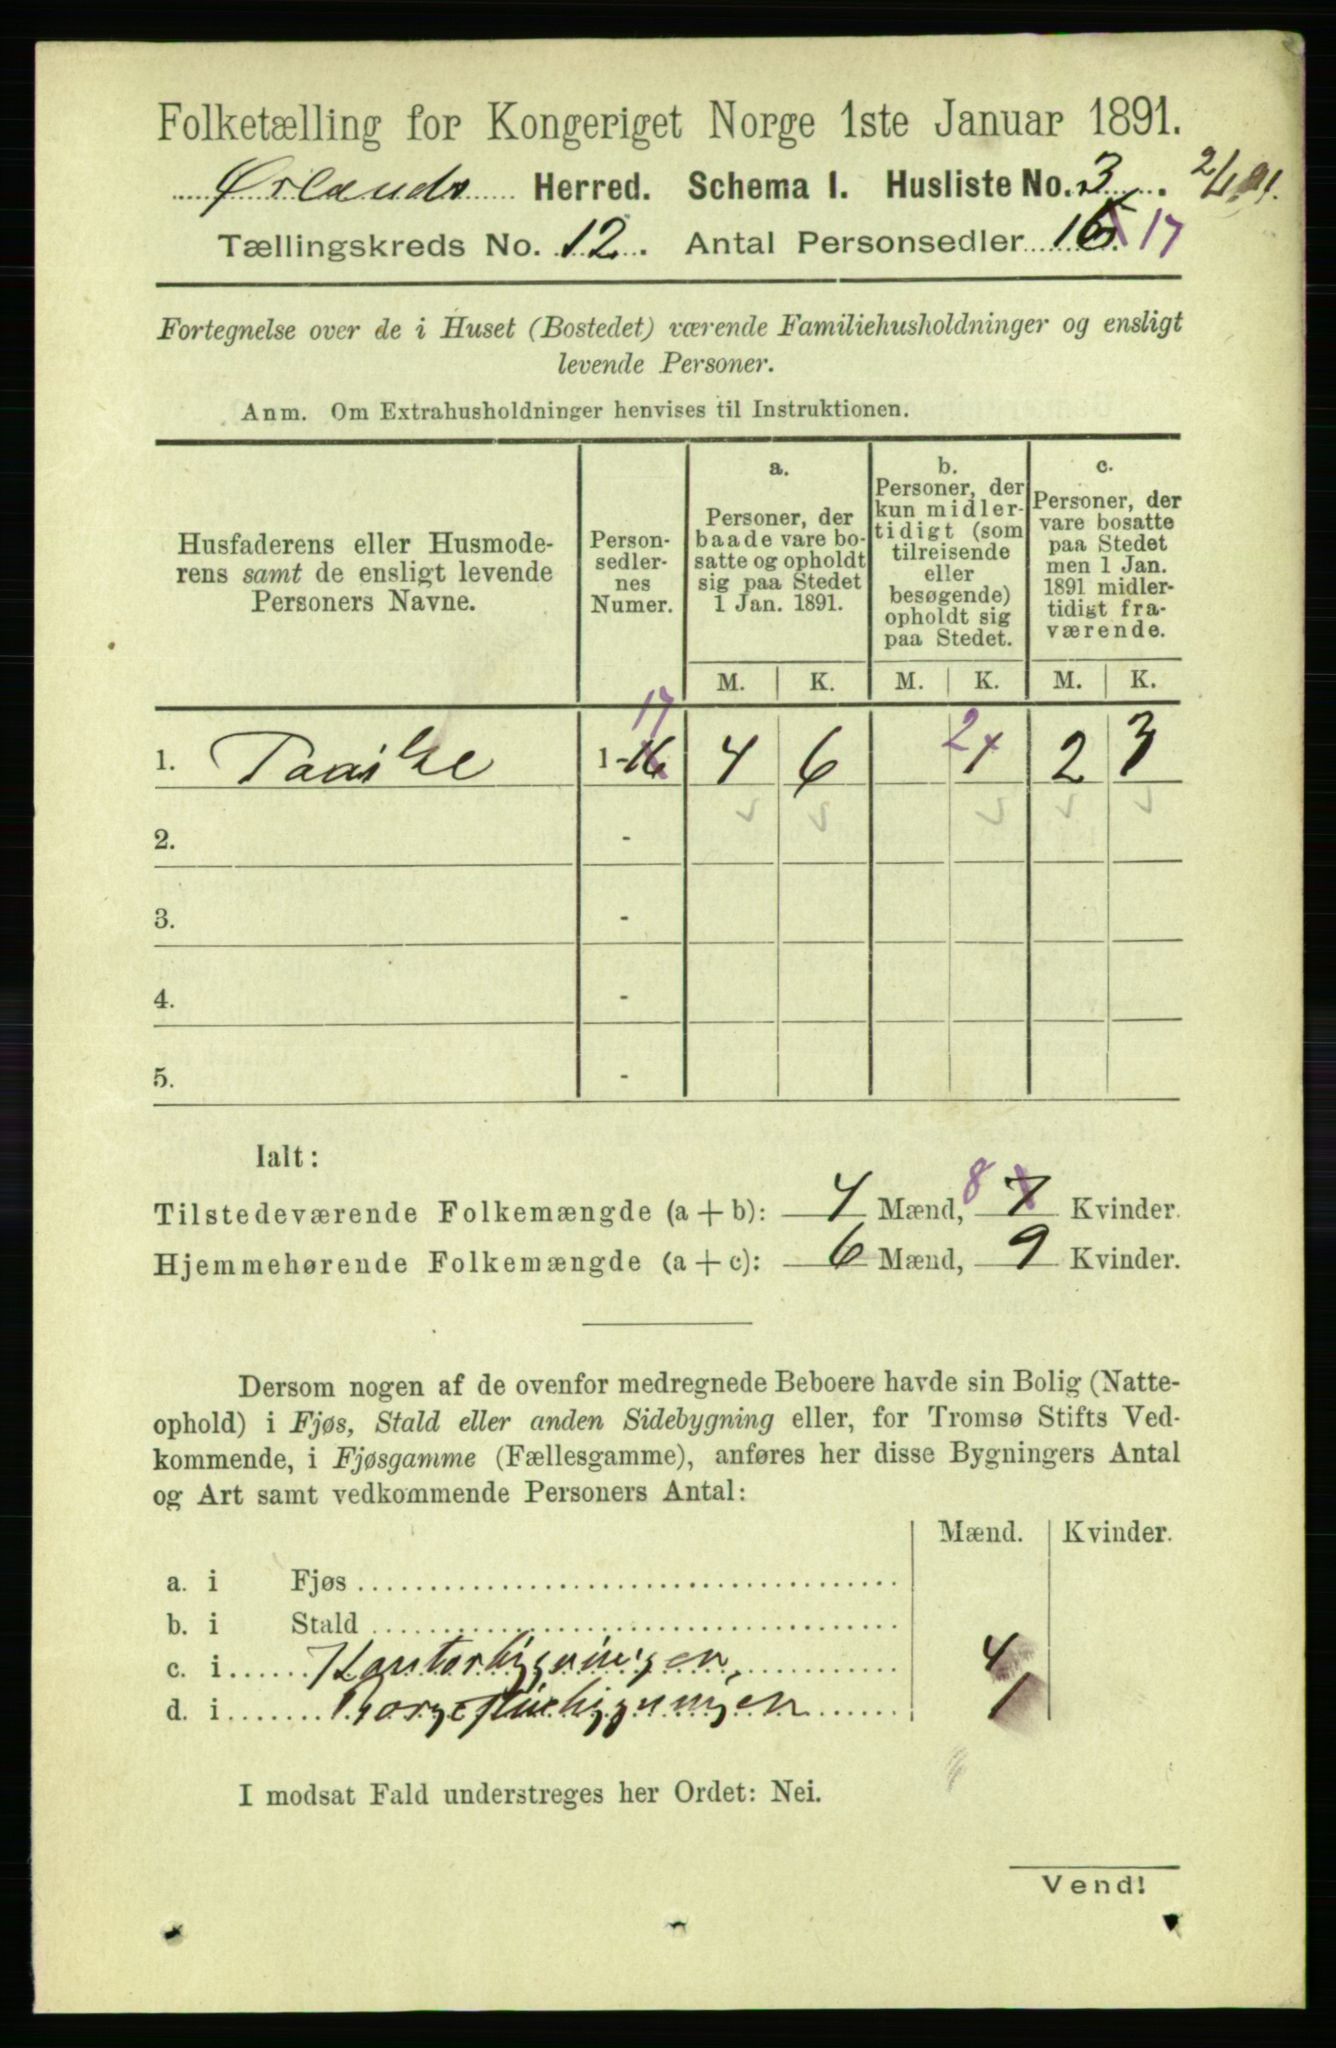 Folketælling for Kongeriget Norge 1ste Januar 1891.
Ørlands Herred. Schema I. Husliste No. 3.
Tællingskreds No. 12. Antal Personsedler 16 17
Fortegnelse over de i Huset (Bostedet) værende Familiehusholdninger og ensligt
levende Personer.
Anm. Om Extrahusholdninger henvises til Instruktionen.
Husfaderens eller Husmode-
rens samt de ensligt levende
Personers Navne.
Person-
sedler-
nes
Numer.
a.
Personer, der
baade vare bo-
satte og opholdt
sig paa Stedet
1 Jan. 1891.
b.
Personer, der
kun midler-
tidigt (som
tilreisende
eller
besøgende)
opholdt sig
paa Stedet.
c.
Personer, der
vare bosatte
paa Stedet
men 1 Jan.
1891 midler-
tidigt fra-
værende.
M. K. M. K. M. K.
17
1. Paaske 1-16 4 6 2 1 2 3
2. -
3. -
4. -
5. -
Ialt:
Tilstedeværende Folkemængde (a + b): 4 Mænd, 8 7 Kvinder.
Hjemmehørende Folkemængde (a + c): 6 Mænd, 9 Kvinder.
Dersom nogen af de ovenfor medregnede Beboere havde sin Bolig (Natte-
ophold) i Fjøs, Stald eller anden Sidebygning eller, for Tromsø Stifts Ved-
kommende, i Fjøsgamme (Fællesgamme), anføres her disse Bygningers Antal
og Art samt vedkommende Personers Antal:
Mænd. Kvinder.
a. i Fjøs
b. i Stald
c. i Kontorbygningen 4
d. i Borgestuebygningen 1
I modsat Fald understreges her Ordet: Nei.
Vend!